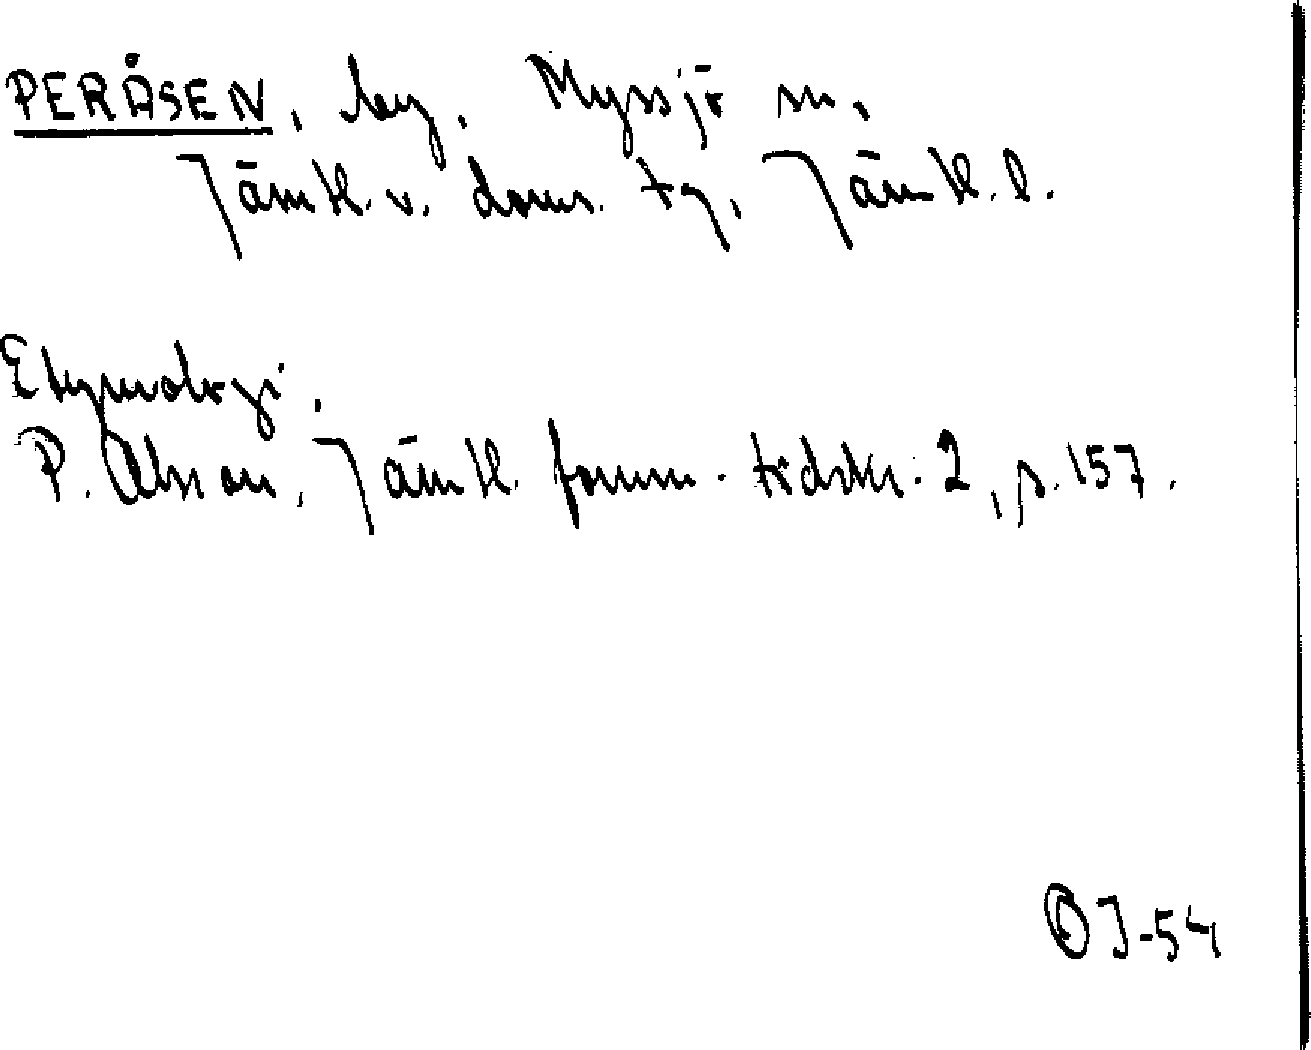 PERÅSEN, by, Myssjö sn,
Jämtl. v. doms. tg, Jämtl. l.
Etymologi.
P. Olsson, Jämtl. fornm. tidskr. 2, s. 157.
J-54